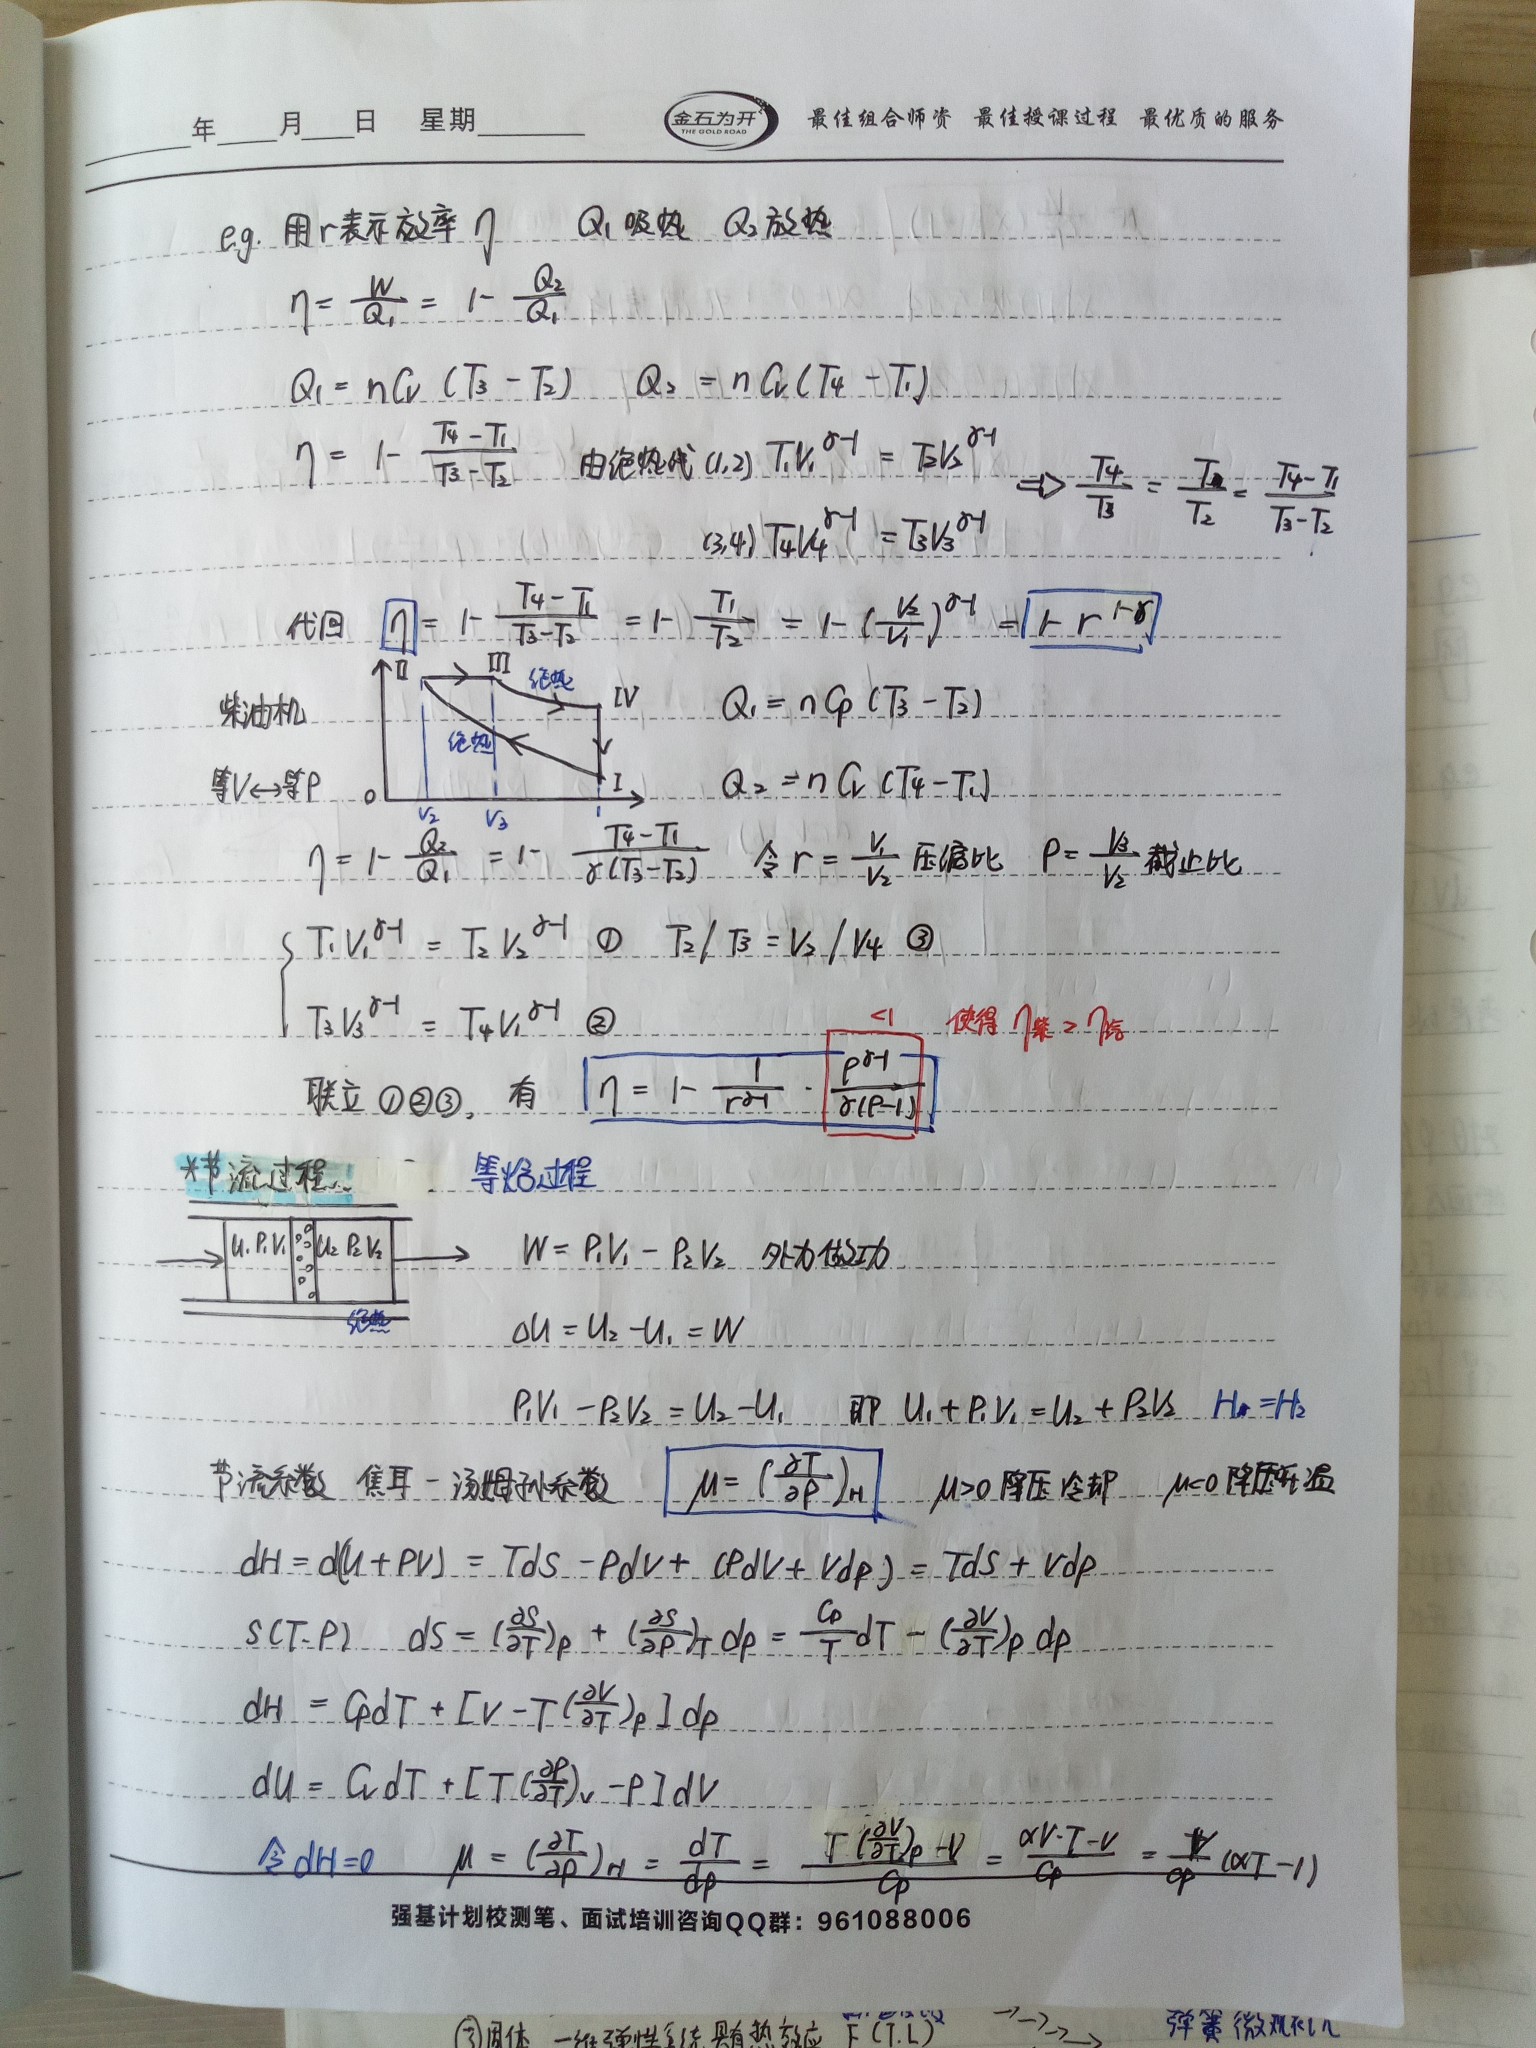 年 月 日 星期
金石为开
THE GOLD ROAD
最佳组合师资 最佳授课过程 最优质的服务
e.g. 用r表示放率 η Q₁吸热 Q₂放热
η = W/Q₁ = 1 - Q₂/Q₁
Q₁ = nCv (T₃ - T₂) Q₂ = nCv (T₄ - T₁)
η = 1 - (T₄-T₁)/(T₃-T₂) 由绝热线 (1,2) T₁V₁^(γ-1) = T₂V₂^(γ-1)
⇒ T₄/T₃ = T₁/T₂ = (T₄-T₁)/(T₃-T₂)
(3,4) T₄V₄^(γ-1) = T₃V₃^(γ-1)
代回 η = 1 - (T₄-T₁)/(T₃-T₂) = 1 - T₁/T₂ = 1 - (V₂/V₁)^(γ-1) = 1 - r^(1-γ)
II III 绝热 IV
柴油机
绝热
Q₁ = nCp (T₃ - T₂)
等V↔等P
O V₂ V₃ I
Q₂ = nCv (T₄ - T₁)
η = 1 - Q₂/Q₁ = 1 - (T₄-T₁)/(γ(T₃-T₂)) 令 r = V₁/V₂ 压缩比 ρ = V₃/V₂ 截止比
T₁V₁^(γ-1) = T₂V₂^(γ-1) ① T₂/T₃ = V₂/V₄ ③
T₃V₃^(γ-1) = T₄V₁^(γ-1) ②
<1 使得 η柴 > η汽
联立 ①②③, 有 η = 1 - 1/r^(γ-1) · ρ^(γ-1)/(γ(ρ-1))
*节流过程 等焓过程
U₁ P₁V₁ U₂ P₂V₂
绝热
W = P₁V₁ - P₂V₂ 外力做功
ΔU = U₂ - U₁ = W
P₁V₁ - P₂V₂ = U₂ - U₁ 即 U₁ + P₁V₁ = U₂ + P₂V₂ H₁ = H₂
节流系数 焦耳-汤姆孙系数 μ = (∂T/∂P)H μ>0 降压冷却 μ<0 降压升温
dH = d(U + PV) = TdS - PdV + (PdV + Vdp) = TdS + Vdp
S(T.P) dS = (∂S/∂T)p + (∂S/∂P)T dp = Cp/T dT - (∂V/∂T)p dp
dH = CpdT + [V - T(∂V/∂T)p] dp
dU = CvdT + [T(∂P/∂T)v - P] dV
令 dH=0 μ = (∂T/∂P)H = dT/dp = (T(∂V/∂T)p - V)/Cp = (αV·T - V)/Cp = V/Cp (αT - 1)
强基计划校测笔、面试培训咨询QQ群：961088006
③固体 一维弹性系统具有热效应 F(T.L) 弹簧微观